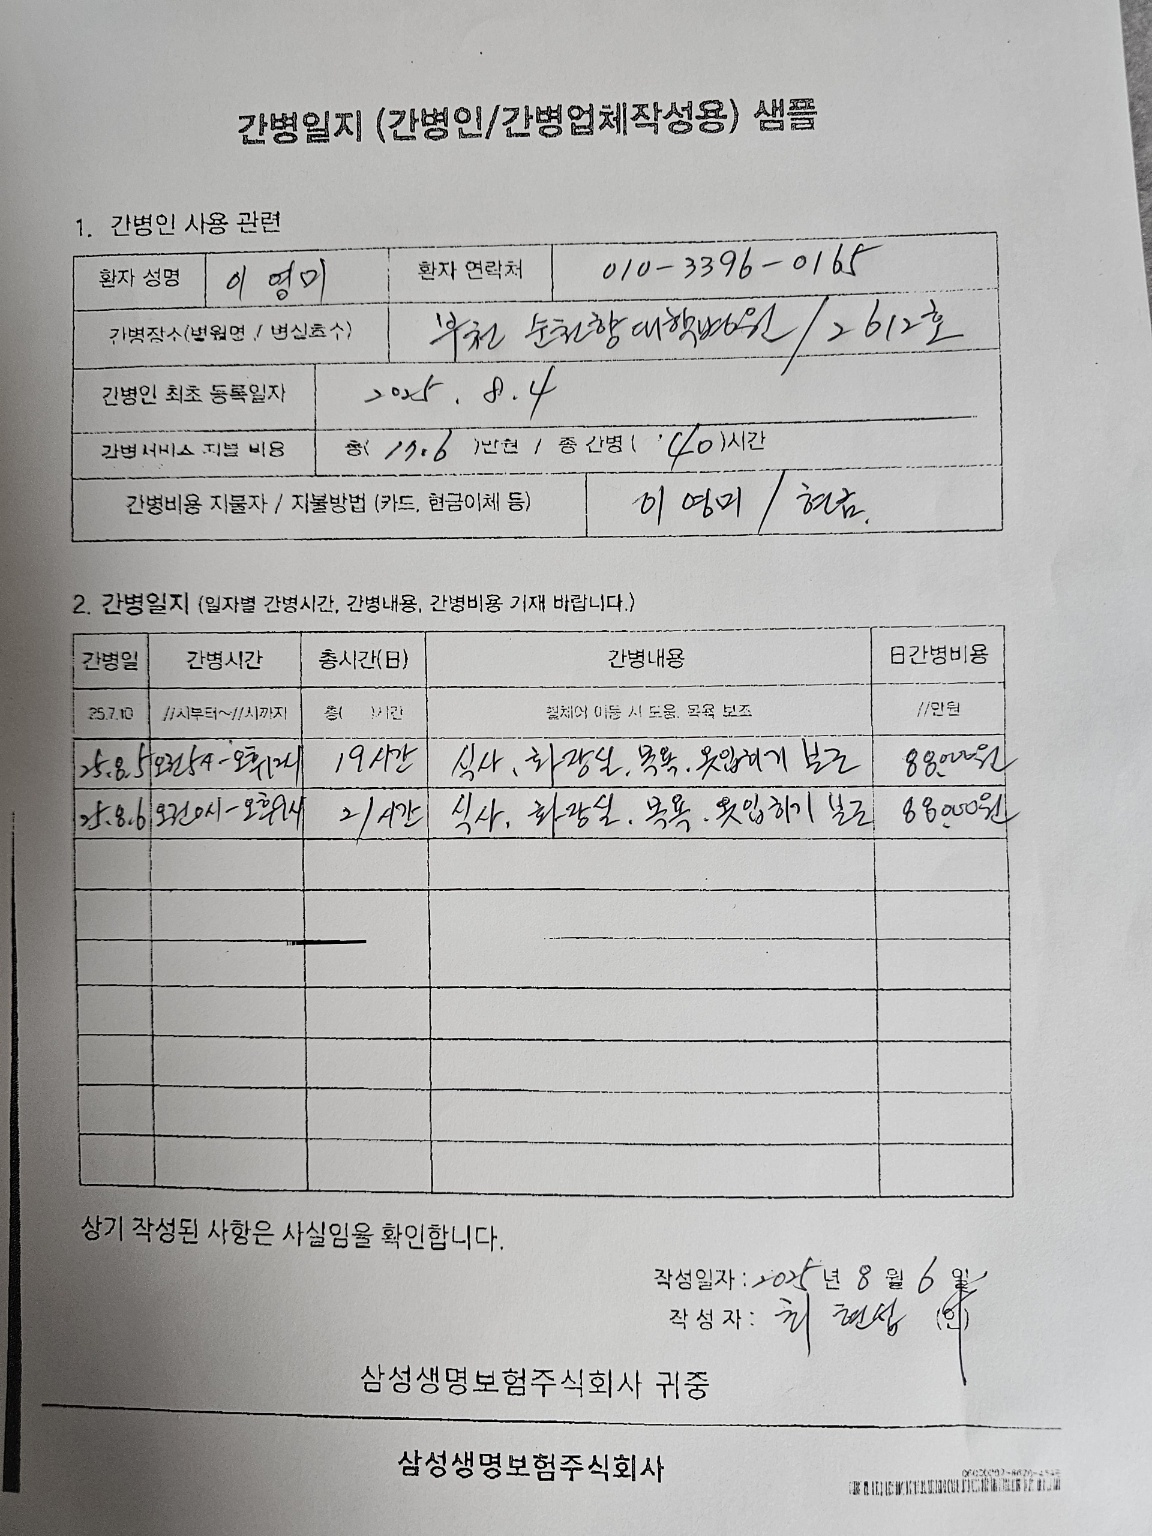 간병일지 (간병인/간병업체작성용) 샘플
1. 간병인 사용 관련
환자 성명 이영미 환자 연락처 010-3396-0165
간병장소(병원명 / 병실호수) 부천 순천향대학병원/2612호
간병인 최초 등록일자 2025.8.4
간병서비스 지불 비용 총( 17.6 )만원 / 총 간병( 40 )시간
간병비용 지불자 / 지불방법 (카드, 현금이체 등) 이영미 / 현금.
2. 간병일지 (일자별 간병시간, 간병내용, 간병비용 기재 바랍니다.)
간병일 간병시간 총시간(日) 간병내용 日간병비용
25.7.10 //시부터~//시까지 총( )시간 휠체어 이동 시 도움, 목욕 보조 //만원
25.8.5 오전5시-오후12시 19시간 식사, 화장실, 목욕, 옷입하기 보조 88,000원
25.8.6 오전0시-오후9시 21시간 식사, 화장실, 목욕, 옷입하기 보조 88,000원
상기 작성된 사항은 사실임을 확인합니다.
작성일자 : 2025년 8월 6일
작 성 자 : 최현섭 (인)
삼성생명보험주식회사 귀중
삼성생명보험주식회사